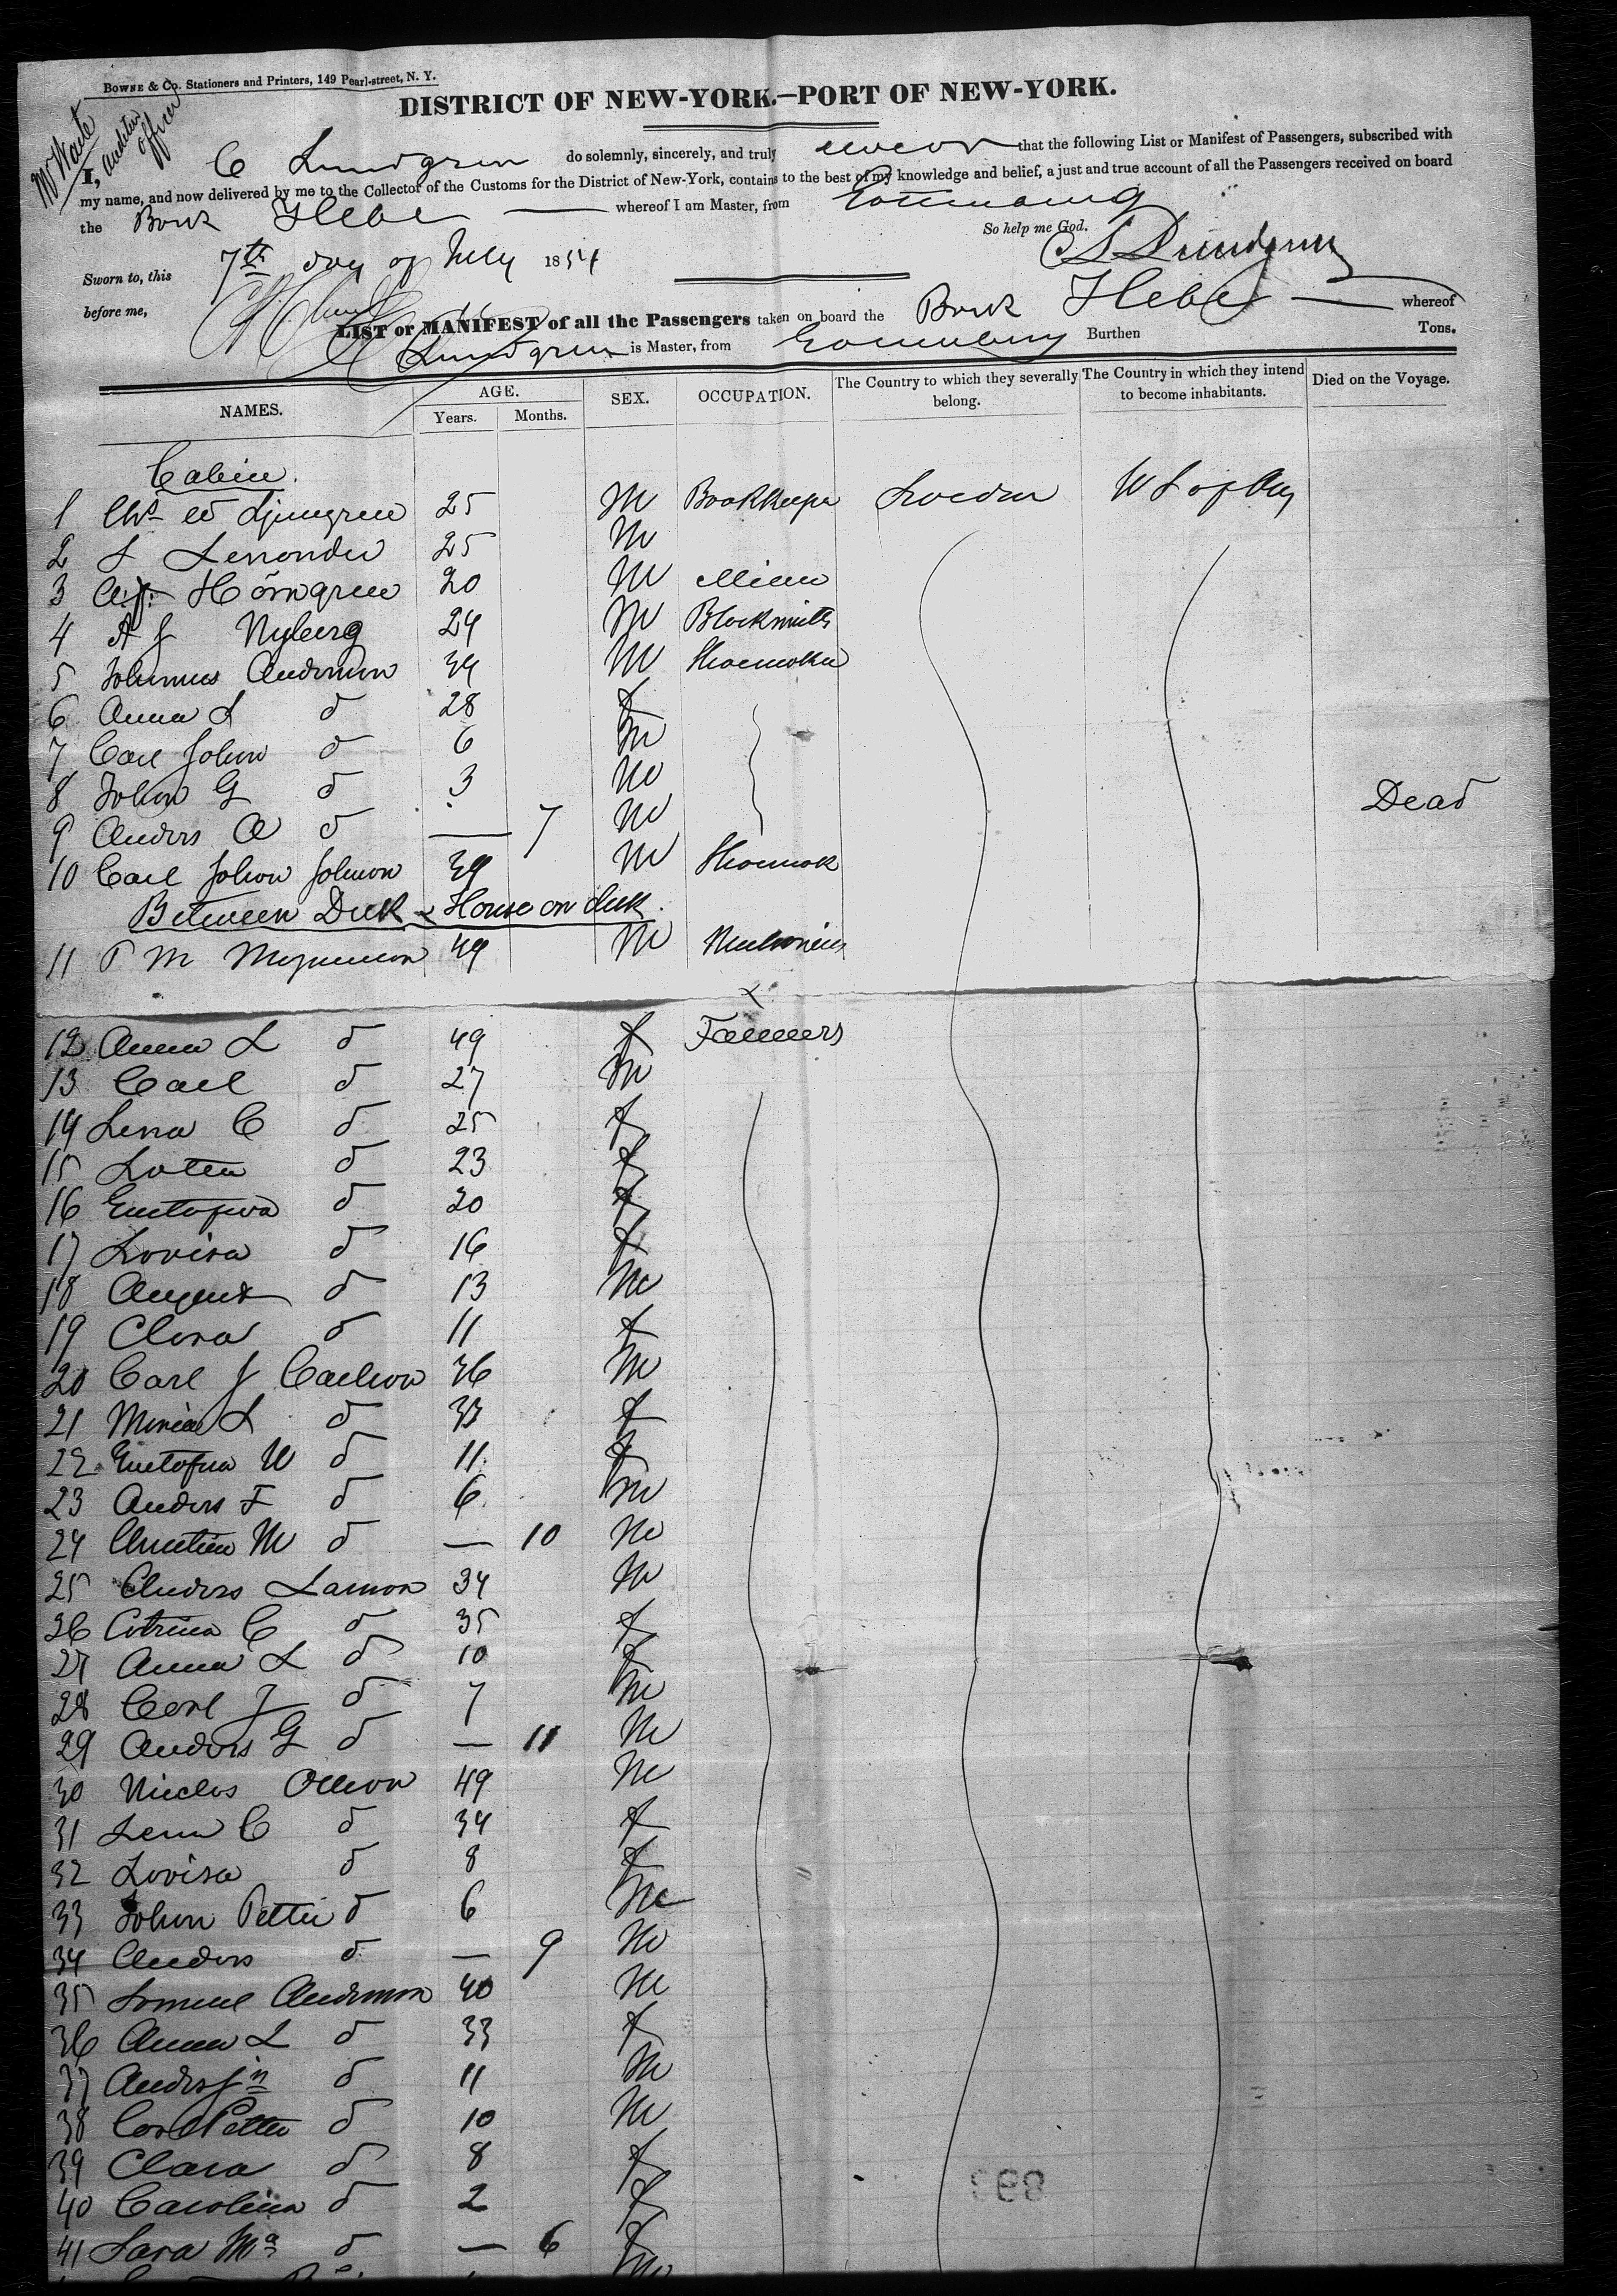 BOWNE & Co. Stationers and Printers, 149 Pearl-street, N. Y.
DISTRICT OF NEW-YORK.—PORT OF NEW-YORK.
Auditors office
I, C Lundgren do solemnly, sincerely, and truly swear that the following List or Manifest of Passengers, subscribed with
my name, and now delivered by me to the Collector of the Customs for the District of New-York, contains to the best of my knowledge and belief, a just and true account of all the Passengers received on board
the Bark Hebe whereof I am Master, from Gottenburg
So help me God.
Sworn to, this 7th day of July 1854
before me,
LIST or MANIFEST of all the Passengers taken on board the Bark Hebe whereof
C Lundgren is Master, from Gottenburg Burthen Tons.
NAMES. AGE. Years. Months. SEX. OCCUPATION. The Country to which they severally belong. The Country in which they intend to become inhabitants. Died on the Voyage.
Cabin.
1 Chs Ed Ljungren 25 M Bookkeeper Sweden U S of Am
2 25 M
3 Horngren 20 M
4 A J Nyberg 24 M Blacksmith
5 Johannes Anderson 34 M Shoemaker
6 Anna L d 28 f
7 Carl Johan d 6 M
8 Johan G d 3 M Dead
9 Anders A d — 7 M
10 Carl Johan Johnson 39 M Shoemak
Between Deck & House on deck.
11 P M Magnuson 49 M
12 Anna L d 49 f Farmers
13 Carl d 27 M
14 Lena C d 25 f
15 Lotta d 23 f
16 Gustafva d 20 f
17 Lovisa d 16 f
18 August d 13 M
19 Clara d 11 f
20 Carl J Carlson 36 M
21 Maria L d 33 f
22 Gustafva W d 11 f
23 Anders F d 6 M
24 Christian M d — 10 M
25 Anders Larson 34 M
26 Catrina C d 35 f
27 Anna L d 10 f
28 Carl J d 7 M
29 Anders G d — 11 M
30 Niclas Olleson 49 M
31 Lena C d 34 f
32 Lovisa d 8 f
33 Johan Petter d 6 M
34 Anders d — 9 M
35 Samuel Anderson 40 M
36 Anna L d 33 f
37 Anders Jn d 11 M
38 Carl Petter d 10 M
39 Clara d 8 f
40 Carolina d 2 f
41 Sara Ma d — 6 f